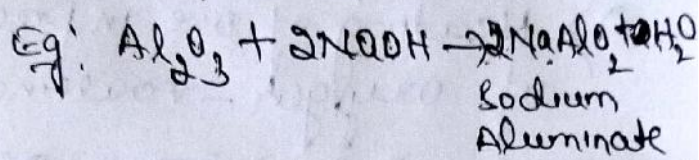 Eg: Al₂O₃ + 2NaOH → 2NaAlO₂ + H₂O
Sodium
Aluminate